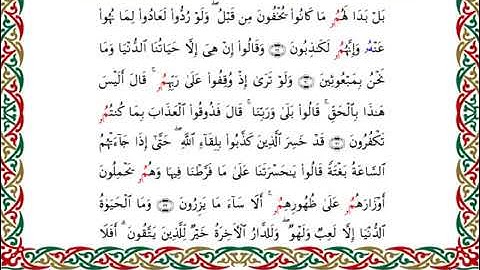 بَلْ بَدَا لَهُمُۥ مَا كَانُوا۟ يُخْفُونَ مِن قَبْلُ ۖ وَلَوْ رُدُّوا۟ لَعَادُوا۟ لِمَا نُهُوا۟
عَنْهُۥ وَإِنَّهُمُۥ لَكَٰذِبُونَ وَقَالُوا۟ إِنْ هِىَ إِلَّا حَيَاتُنَا ٱلدُّنْيَا وَمَا
نَحْنُ بِمَبْعُوثِينَ وَلَوْ تَرَىٰ إِذْ وُقِفُوا۟ عَلَىٰ رَبِّهِمُۥ ۚ قَالَ أَلَيْسَ
هَٰذَا بِٱلْحَقِّ ۚ قَالُوا۟ بَلَىٰ وَرَبِّنَا ۚ قَالَ فَذُوقُوا۟ ٱلْعَذَابَ بِمَا كُنتُمُۥ
تَكْفُرُونَ قَدْ خَسِرَ ٱلَّذِينَ كَذَّبُوا۟ بِلِقَآءِ ٱللَّهِ ۖ حَتَّىٰ إِذَا جَآءَتْهُمُ
ٱلسَّاعَةُ بَغْتَةً قَالُوا۟ يَٰحَسْرَتَنَا عَلَىٰ مَا فَرَّطْنَا فِيهَا وَهُمُۥ يَحْمِلُونَ
أَوْزَارَهُمُۥ عَلَىٰ ظُهُورِهِمُۥ ۚ أَلَا سَآءَ مَا يَزِرُونَ وَمَا ٱلْحَيَوٰةُ
ٱلدُّنْيَا إِلَّا لَعِبٌ وَلَهْوٌ ۖ وَلَلدَّارُ ٱلْأٓخِرَةُ خَيْرٌ لِّلَّذِينَ يَتَّقُونَ ۗ أَفَلَا